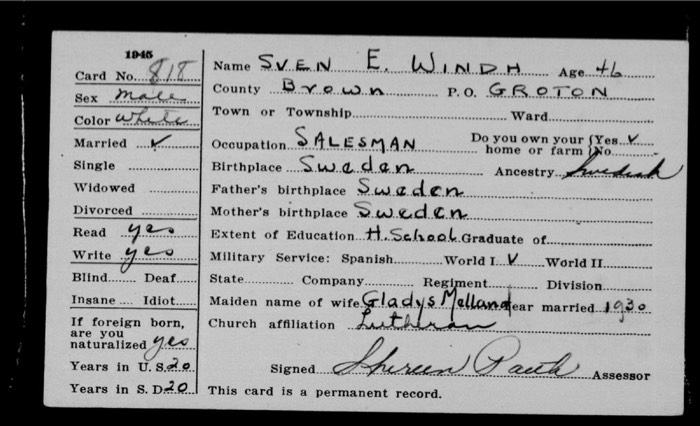 1945
Card No. 818
Sex Male
Color White
Married ✓
Single
Widowed
Divorced
Read yes
Write yes
Blind Deaf
Insane Idiot
If foreign born, are you naturalized yes
Years in U. S. 20
Years in S. D. 20
Name SVEN E. WINDH Age 46
County Brown P. O. GROTON
Town or Township Ward
Occupation SALESMAN Do you own your home or farm {Yes ✓ No
Birthplace Sweden Ancestry Swedish
Father's birthplace Sweden
Mother's birthplace Sweden
Extent of Education H. School Graduate of
Military Service: Spanish World I ✓ World II
State Company Regiment Division
Maiden name of wife Gladys Melland ear married 1930
Church affiliation Lutheran
Signed Assessor
This card is a permanent record.